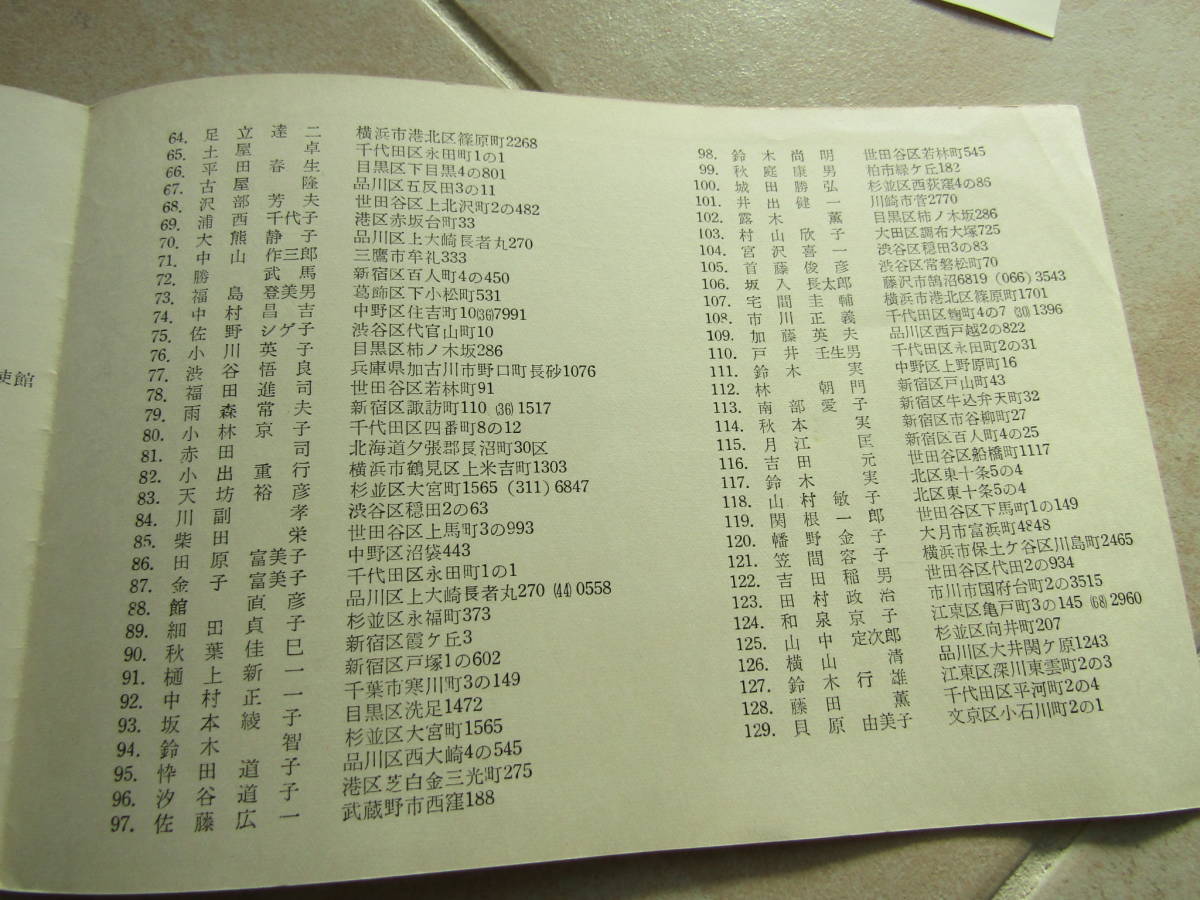 使館
64. 足立達二 横浜市港北区篠原町2268
65. 土屋卓 千代田区永田町1の1
66. 平田春生 目黒区下目黒4の801
67. 古屋隆 品川区五反田3の11
68. 沢部芳夫 世田谷区上北沢町2の482
69. 浦西千代子 港区赤坂台町33
70. 大熊静子 品川区上大崎長者丸270
71. 中山作三郎 三鷹市牟礼333
72. 勝武馬 新宿区百人町4の450
73. 福島登美男 葛飾区下小松町531
74. 中村昌吉 中野区住吉町10(36)7991
75. 佐野シゲ子 渋谷区代官山町10
76. 小川英子 目黒区柿ノ木坂286
77. 渋谷悟良 兵庫県加古川市野口町長砂1076
78. 福田進司 世田谷区若林町91
79. 雨森常夫 新宿区諏訪町110 (36) 1517
80. 小林京子 千代田区四番町8の12
81. 赤田司 北海道夕張郡長沼町30区
82. 小出重行 横浜市鶴見区上米吉町1303
83. 天坊裕彦 杉並区大宮町1565 (311) 6847
84. 川副孝 渋谷区穏田2の63
85. 柴田栄 世田谷区上馬町3の993
86. 田原富美子 中野区沼袋443
87. 金子富美子 千代田区永田町1の1
88. 館直彦 品川区上大崎長者丸270 (44) 0558
89. 細田貞子 杉並区永福町373
90. 秋葉佳巳 新宿区霞ケ丘3
91. 樋上新一 新宿区戸塚1の602
92. 中村正一 千葉市寒川町3の149
93. 坂本綾子 目黒区洗足1472
94. 鈴木智 杉並区大宮町1565
95. 忰田道子 品川区西大崎4の545
96. 汐谷道子 港区芝白金三光町275
97. 佐藤広一 武蔵野市西窪188
98. 鈴木尚明 世田谷区若林町545
99. 秋庭康男 柏市緑ケ丘182
100. 城田勝弘 杉並区西荻窪4の86
101. 井出健一 川崎市菅2770
102. 露木薫 目黒区柿ノ木坂286
103. 村山欣子 大田区調布大塚725
104. 宮沢喜一 渋谷区穏田3の83
105. 首藤俊彦 渋谷区常磐松町70
106. 坂入長太郎 藤沢市鵠沼6819 (066) 3543
107. 宅間圭輔 横浜市港北区篠原町1701
108. 市川正義 千代田区麹町4の7 (30) 1396
109. 加藤英夫 品川区西戸越2の822
110. 戸井壬生男 千代田区永田町2の31
111. 鈴木実 中野区上野原町16
112. 林朝門 新宿区戸山町43
113. 南部愛子 新宿区牛込弁天町32
114. 秋本実 新宿区市谷柳町27
115. 月江匡 新宿区百人町4の25
116. 吉田元 世田谷区船橋町1117
117. 鈴木実 北区東十条5の4
118. 山村敏子 北区東十条5の4
119. 関根一郎 世田谷区下馬町1の149
120. 幡野金子 大月市富浜町4848
121. 笠間容子 横浜市保土ケ谷区川島町2465
122. 吉田稲男 世田谷区代田2の934
123. 田村政治 市川市国府台町2の3515
124. 和泉京子 江東区亀戸町3の145 (68) 2960
125. 山中定次郎 杉並区向井町207
126. 横山清 品川区大井関ケ原1243
127. 鈴木行雄 江東区深川東雲町2の3
128. 藤田薫 千代田区平河町2の4
129. 貝原由美子 文京区小石川町2の1